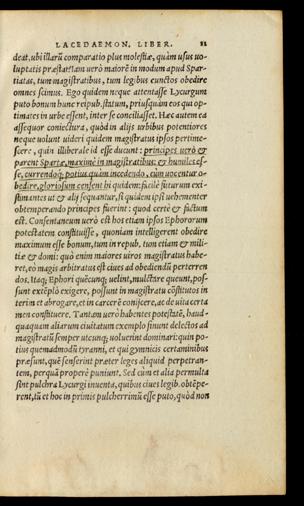 LACEDAEMON. LIBER. 21
deat, ubi illarũ comparatio plus molestiæ, quàm usus uo-
luptatis præstar? tam uerò maiorẽ in modum apud Spar-
tiatas, tum magistratibus, tum legibus cunctos obedire
omnes scimus. Ego quidem neque attentasse Lycurgum
puto bonum hunc reipub. statum, priusquàm eos qui op-
timates in urbe essent, inter se conciliasset. Hæc autem ea
assequor coniectura, quòd in alijs urbibus potentiores
neque uolunt uideri quidem magistratus ipsos pertime-
scere, quin illiberale id esse ducunt: principes uerò &
parent Spartæ, maximè in magistratibus: & humiles es-
se, currendoq; potius quàm incedendo, cum uocentur o-
bedire, gloriosum censent hi quidem: facilè futurum exi-
stimantes ut & alij sequantur, si quidem ipsi uehementer
obtemperando principes fuerint: quod certè & factum
est. Consentaneum uerò est hos etiam ipsos Ephororum
potestatem constituisse, quoniam intelligerent obedire
maximum esse bonum, tum in repub. tum etiam & mili-
tiæ & domi: quò enim maiores uiros magistratus habe-
ret, eò magis arbitratus est ciues ad obediendũ perterren
dos. Itaq; Ephori quẽcunq; uelint, mulctare queunt, pos-
sunt extẽplò exigere, possunt in magistratu cõstitutos in
terim et abrogare, et in carcerẽ conijcere, ac de uita certa
men constituere. Tantam uerò habentes potestatẽ, haud-
quaquam aliarum ciuitatum exemplo sinunt delectos ad
magistratũ semper utcunq; uoluerint dominari: quin po-
tius quemadmodũ tyranni, et qui gymnicis certaminibus
præsunt, quẽ senserint præter leges aliquid perpetran-
tem, perquã properè puniunt. Sed cùm et alia permulta
sint pulchra Lycurgi inuenta, quibus ciues legib. obtẽpe-
rent, tũ et hoc in primis pulcherrimũ esse puto, quòd non